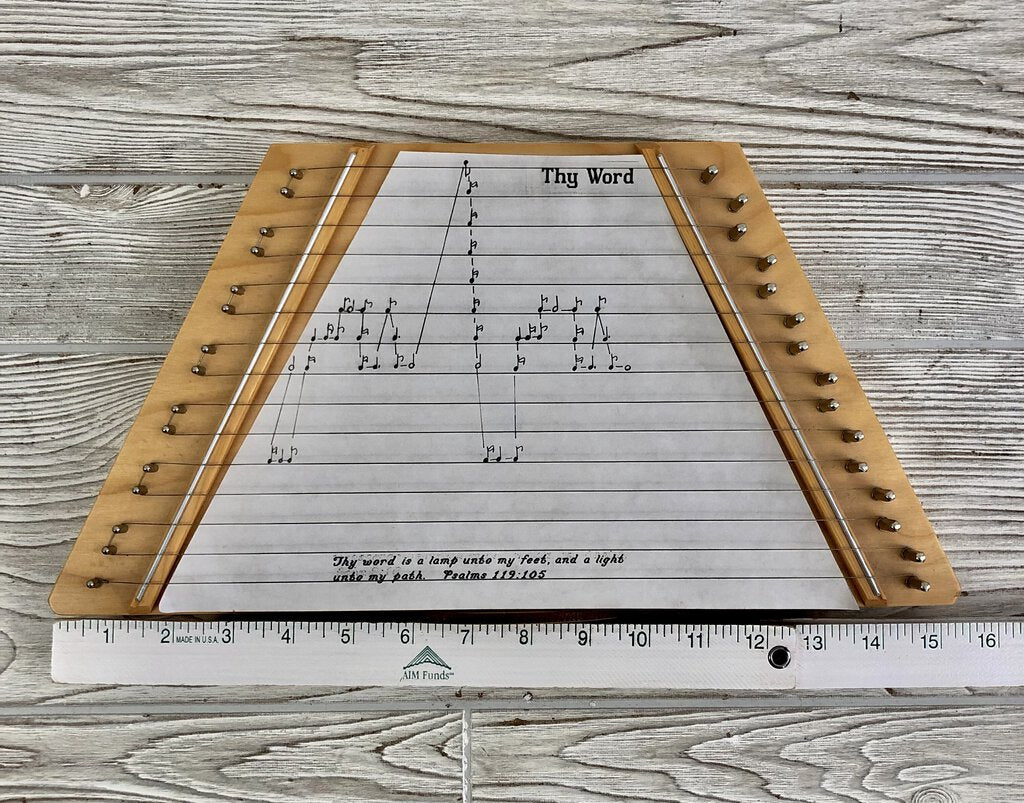 Thy Word
Thy word is a lamp unto my feet, and a light
unto my path. Psalms 119:105
1 2 MADE IN U.S.A. 3 4 5 6 7 8 9 10 11 12 13 14 15 16
AIM Funds℠